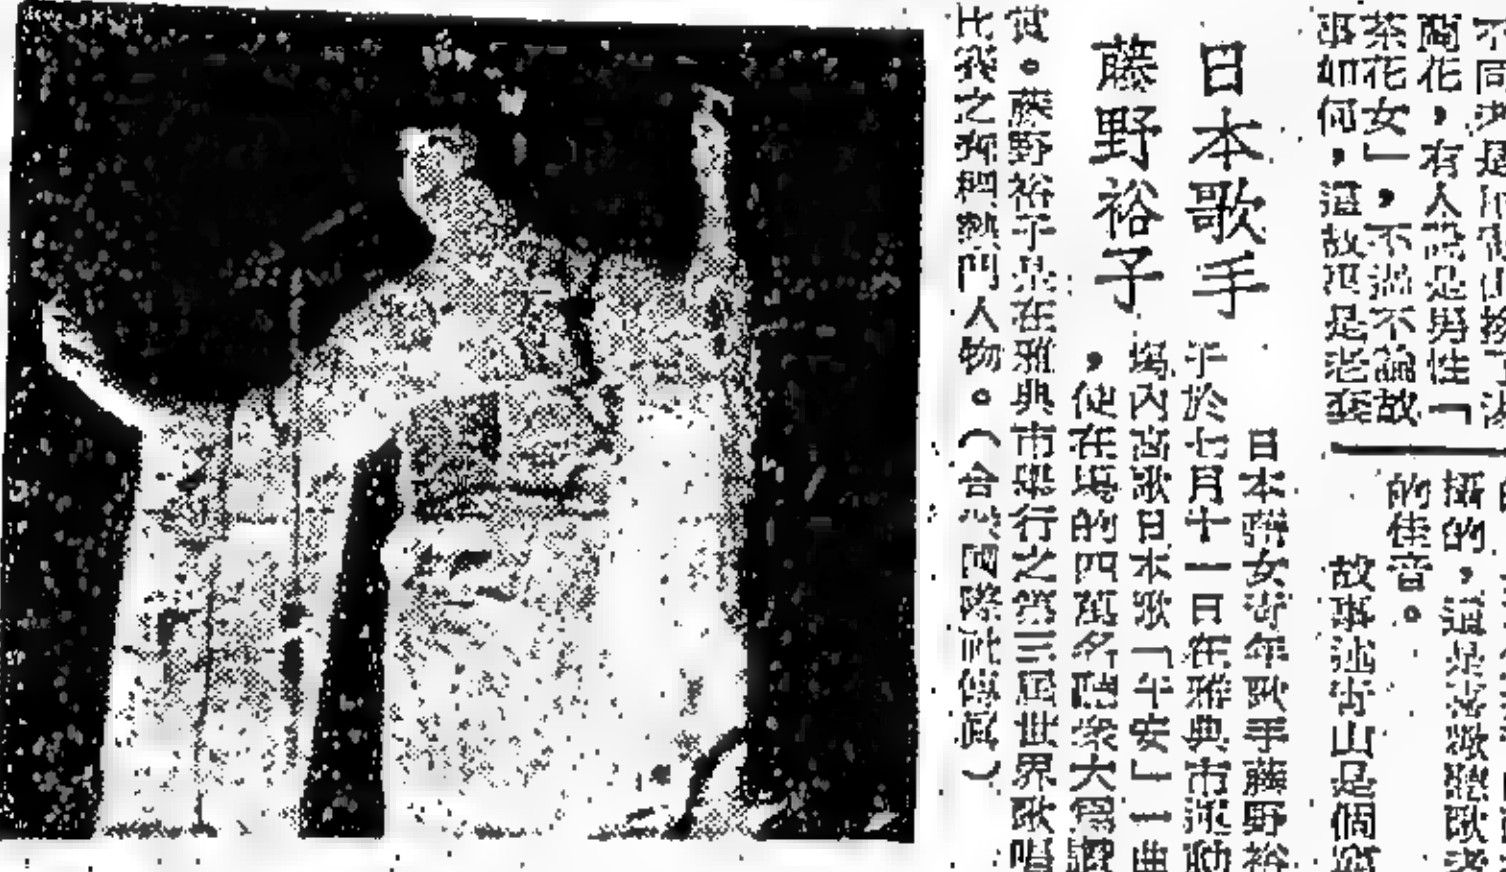 不同之是
蘭花，有人說是男性「
茶花女」，不過不論故
事如何，這故事是老套
攝的，這是喜歡聽歌者
的佳音。
故事述青山是個
日本歌手
藤野裕子
日本籍女青年歌手藤野裕
子於七月十一日在雅典市運動
場內高歌日本歌「午安」一曲
，使在場的四萬名聽眾大為讚
賞。藤野裕子是在雅典市舉行之第三屆世界歌唱
比賽之熱門人物。（合眾國際社傳真）